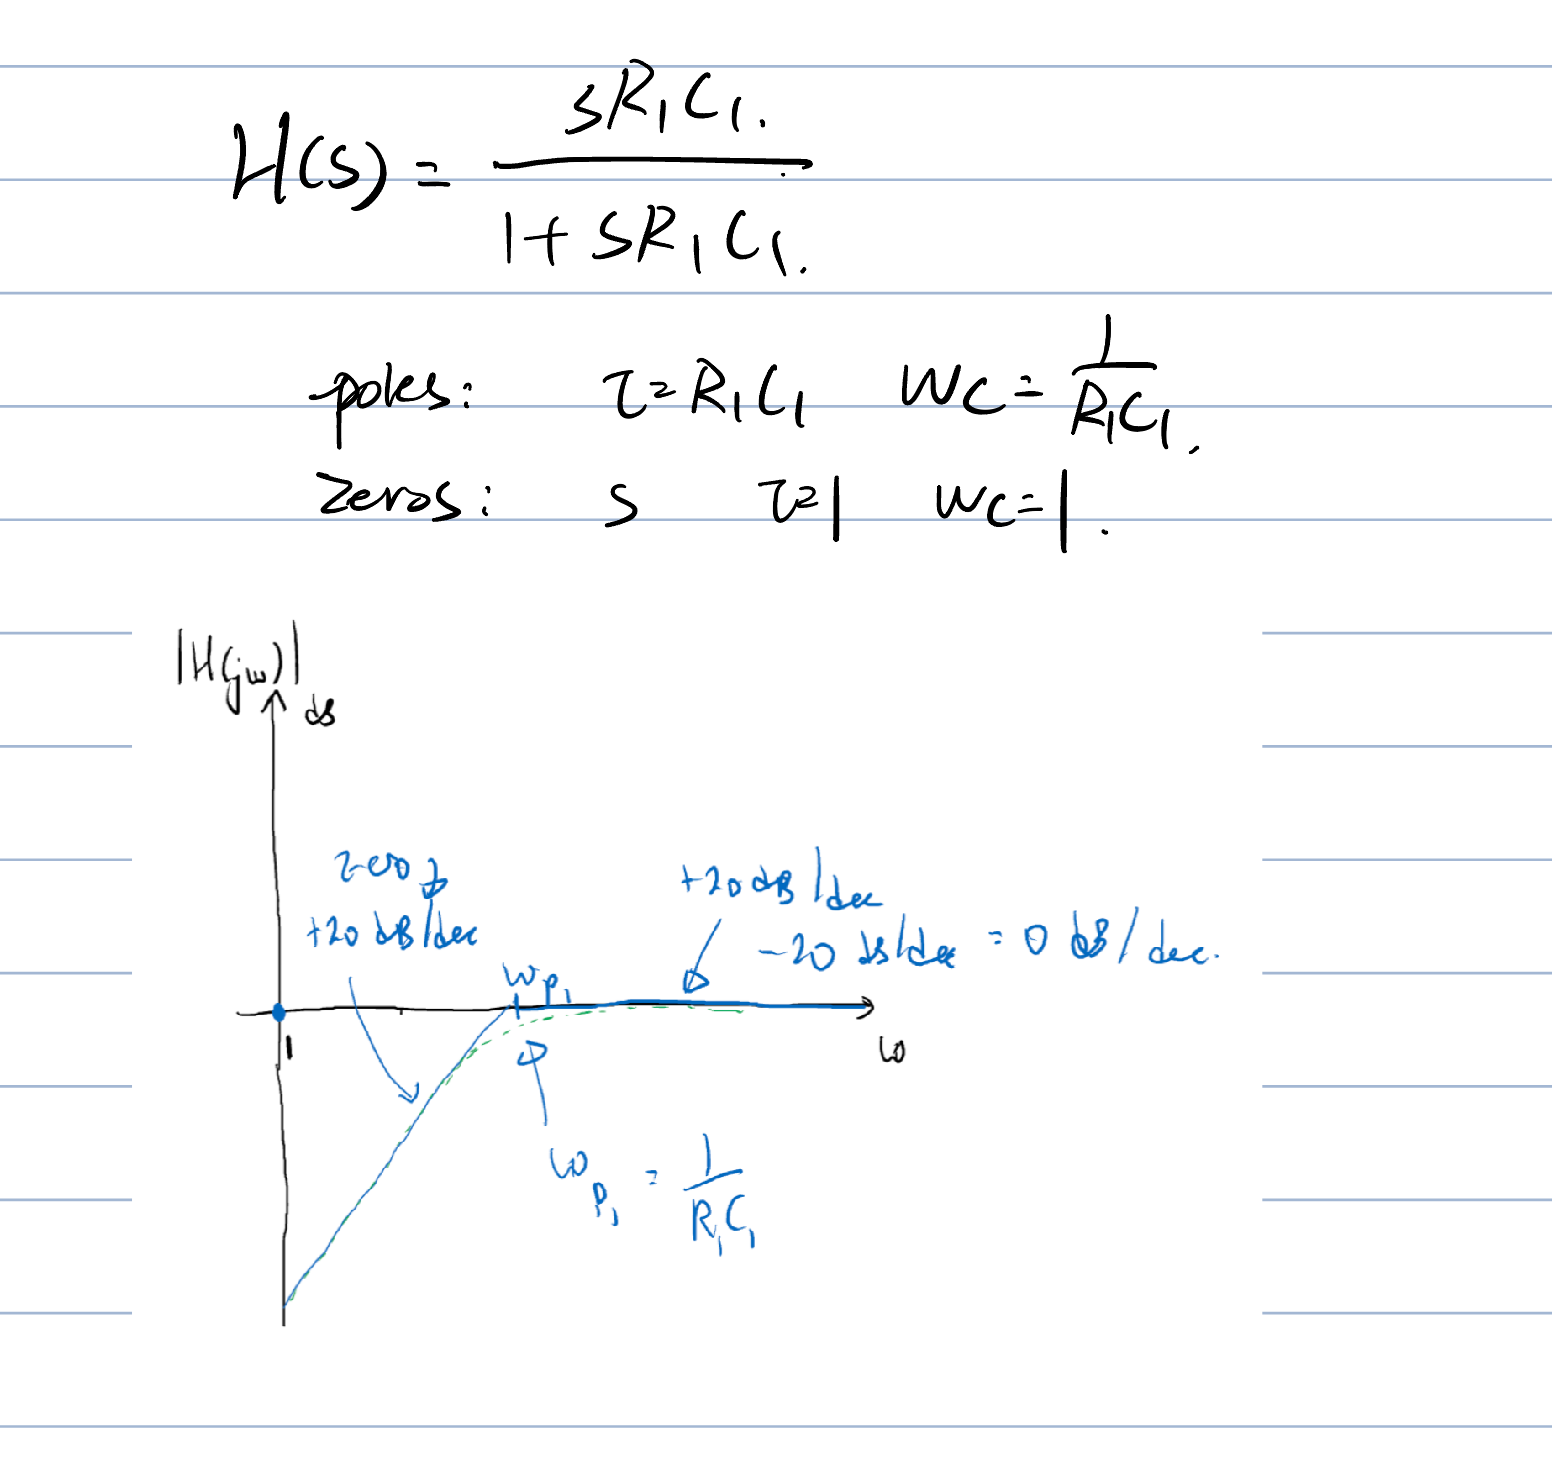 H(s) = sR₁C₁. / 1+SR₁C₁.
poles: τ=R₁C₁ Wc= 1/R₁C₁.
Zeros: S τ=1 Wc=1.
|H(jω)|
dB
zero
+20 dB/dec
+20 dB/dec
-20 dB/dec = 0 dB/dec.
ωp₁
1
ω
ωp₁ = 1/R₁C₁